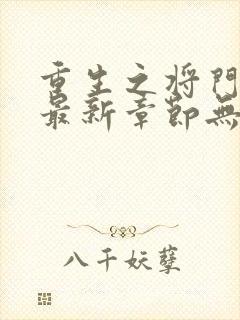 重生之将门
最新章節無
八千妖孽